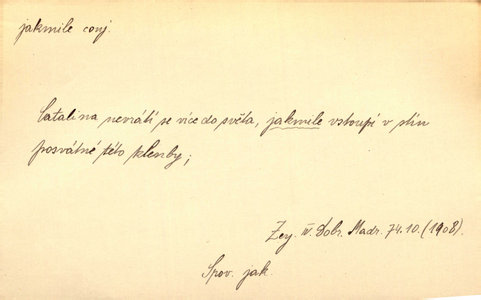 jakmile conj.
Catalina nevrátí se více do světa, jakmile vstoupí v stín
posvátné této klenby;
Zey. IV. Dobr. Madr. 74.10. (1908).
Spov. jak.